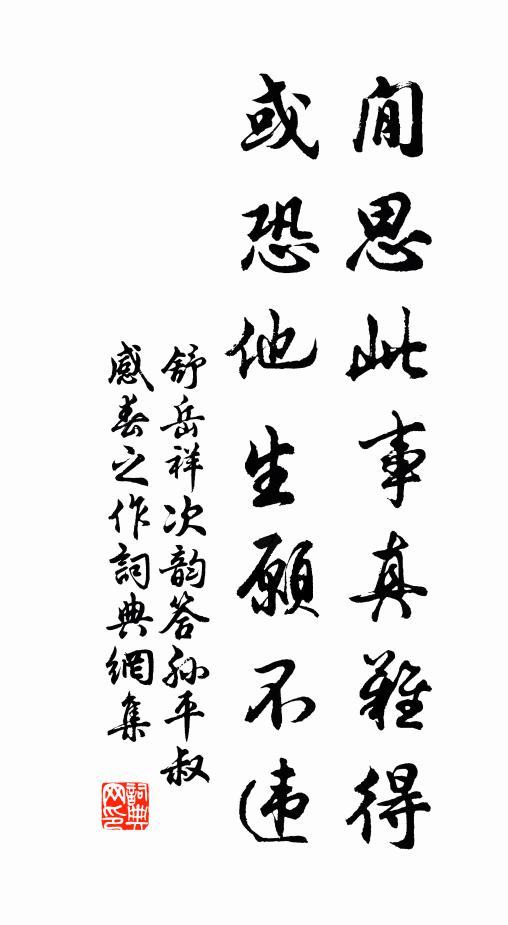 閒思此事真難得
或恐他生願不违
舒岳祥次韵答孙平叔
感春之作詞典網集
詞典网印